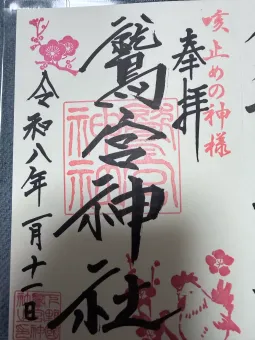 咳止めの神様
奉拝
鷲宮神社
令和八年一月十一日